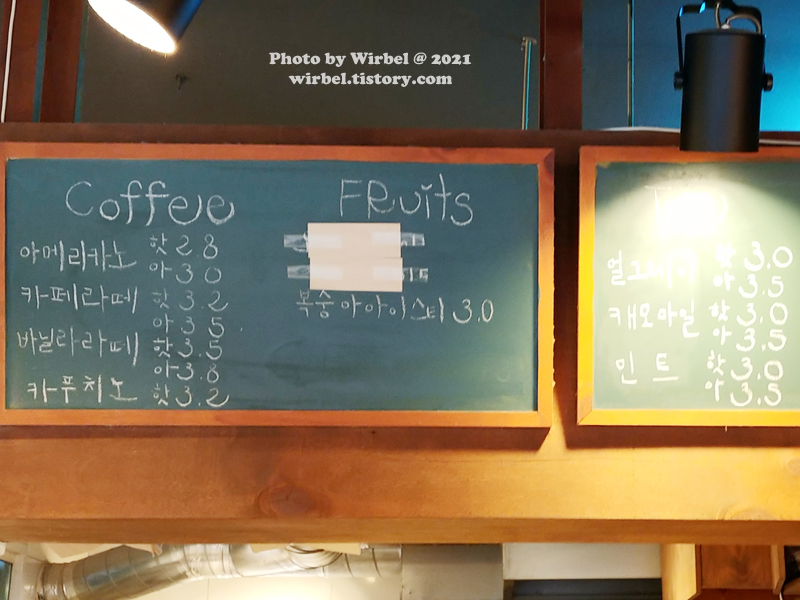 Photo by Wirbel @ 2021
wirbel.tistory.com
Coffee
아메리카노 핫 2.8
아 3.0
카페라떼 핫 3.2
아 3.5
바닐라라떼 핫 3.5
아 3.8
카푸치노 핫 3.2
FRuits
복숭아아이스티 3.0
얼그레이 핫 3.0
아 3.5
캐모마일 핫 3.0
아 3.5
민트 핫 3.0
아 3.5